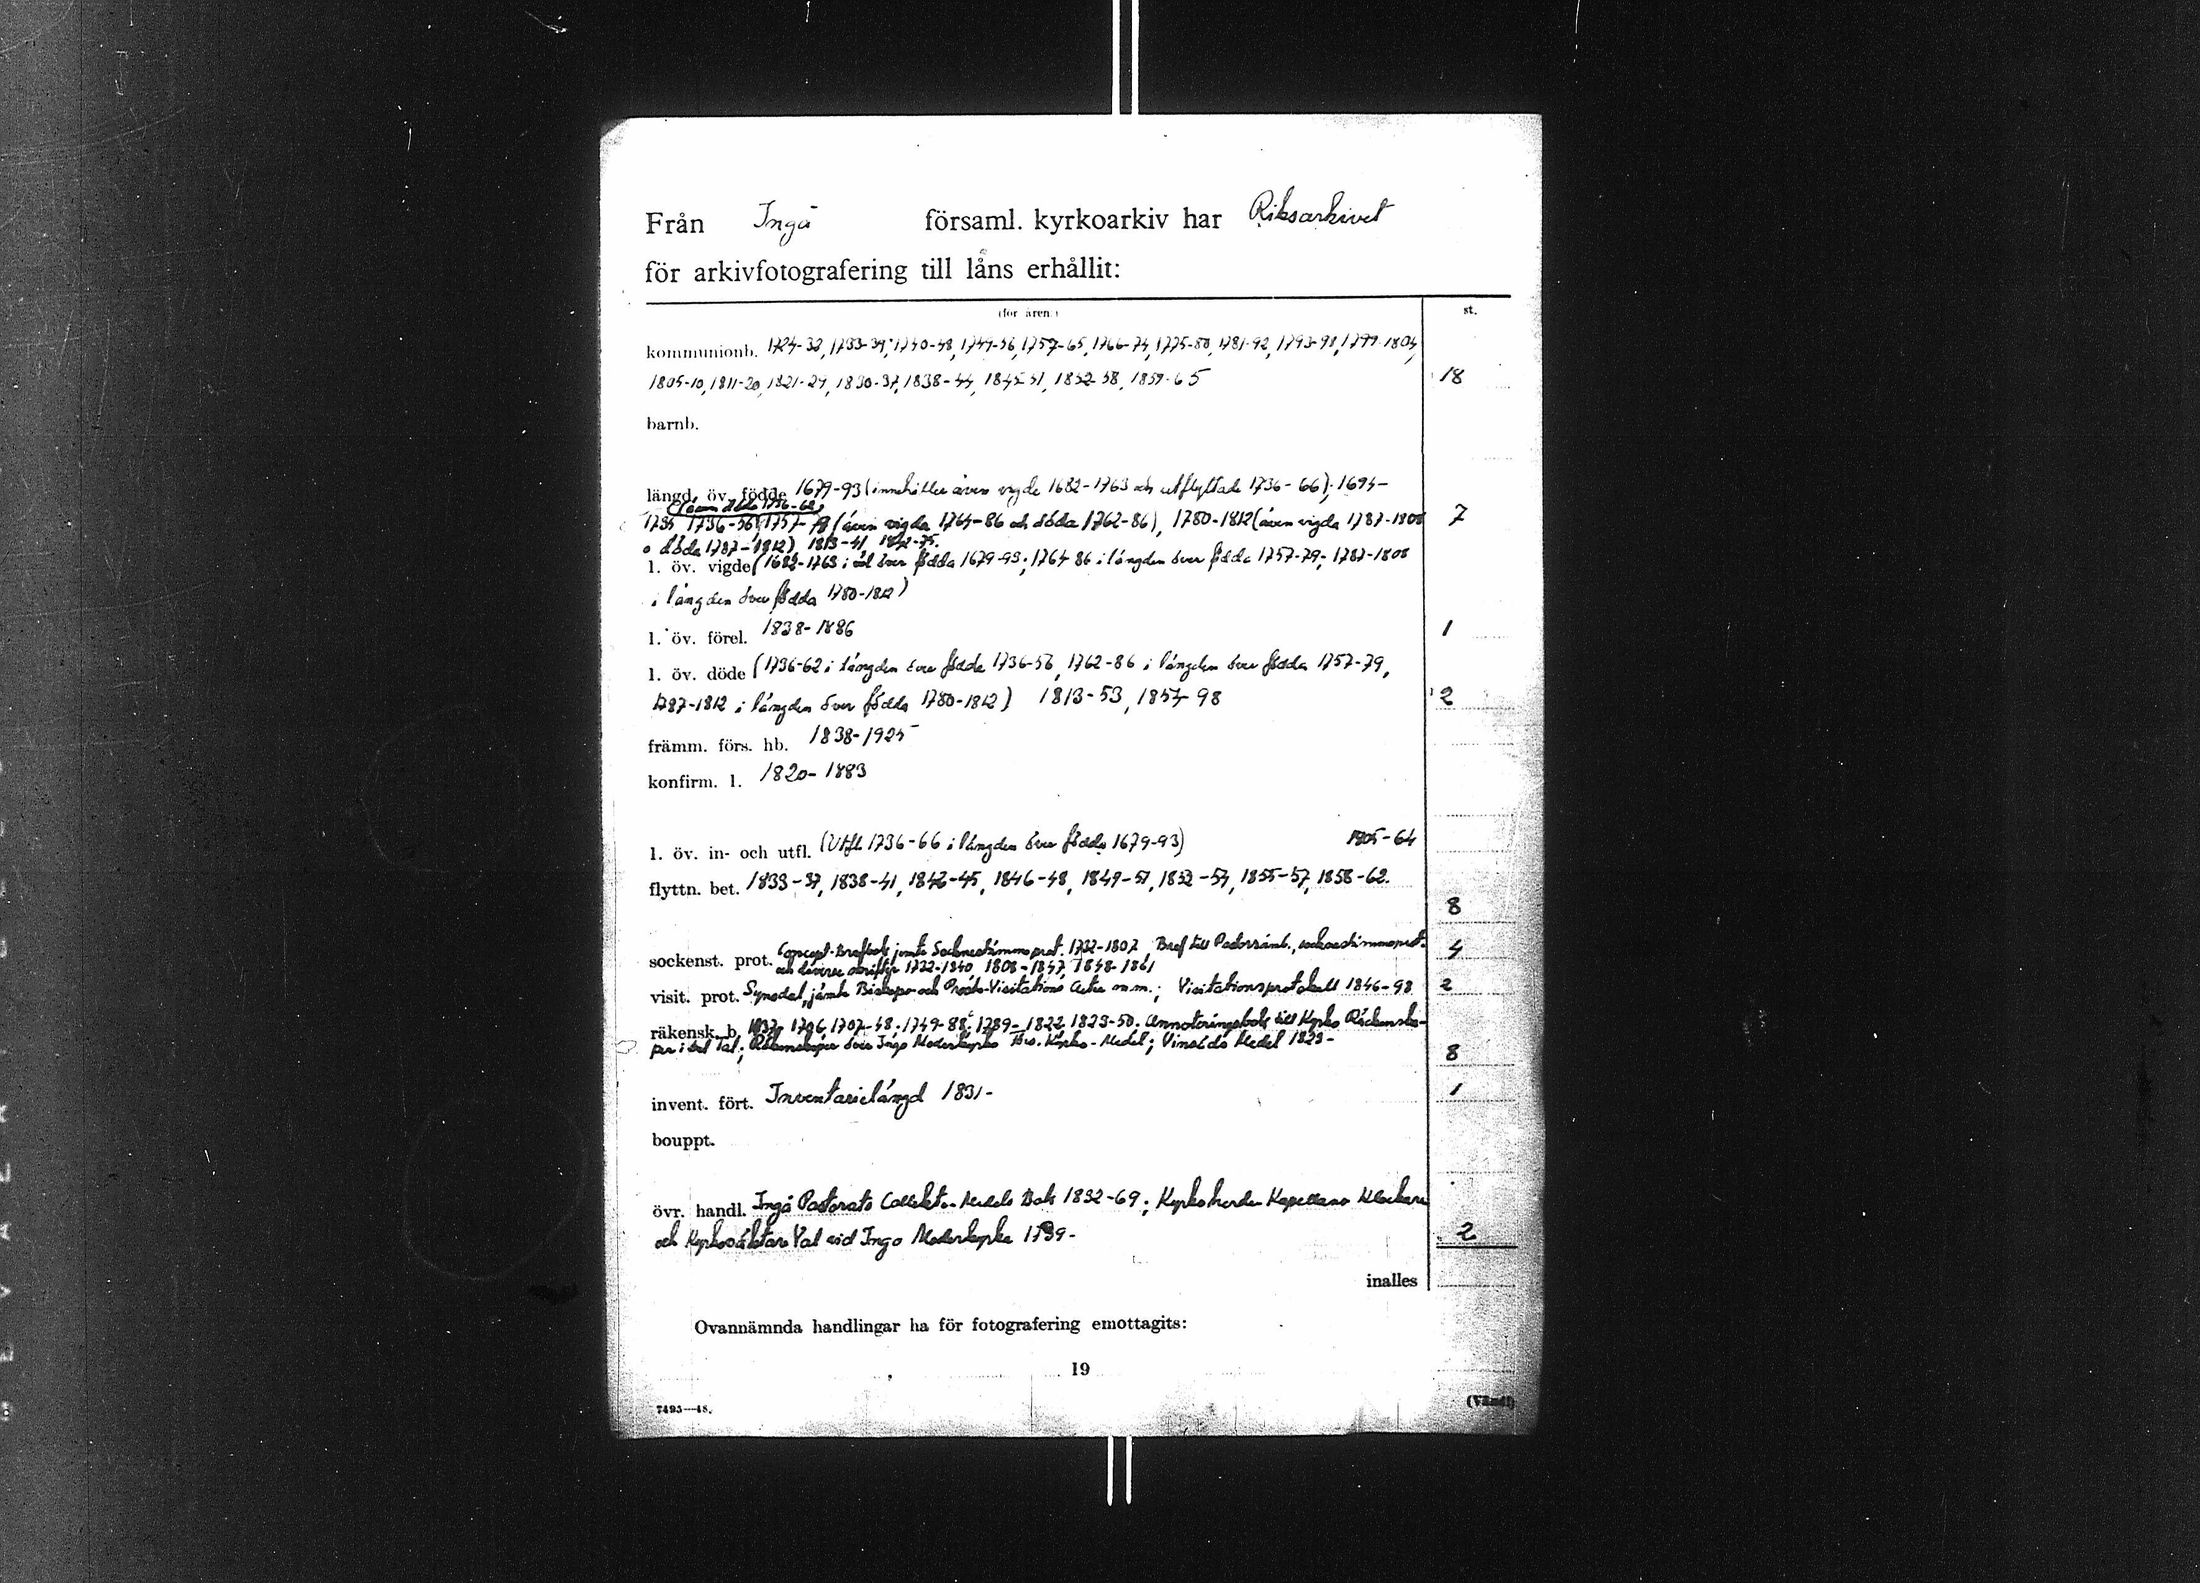 Från Ingå församl. kyrkoarkiv har Riksarkivet
för arkivfotografering till låns erhållit:
(för åren:) st.
kommunionb. 1724-32, 1733-39, 1740-48, 1749-56, 1757-65, 1766-74, 1775-80, 1781-92, 1793-98, 1799-1804,
1805-10, 1811-20, 1821-29, 1830-37, 1838-44, 1845-51, 1852-58, 1859-65 18
barnb.
längd. öv. födde 1679-93 (innehåller även vigde 1682-1763 och utflyttade 1736-66), 1694-
(även döda 1736-62)
1735 1736-56, 1757-79 (även vigda 1764-86 och döda 1762-86), 1780-1812 (även vigda 1787-1808 7
o döda 1787-1812) 1813-41 1842-75.
l. öv. vigde (1682-1763 i över födda 1679-93; 1764-86 i längden över födda 1757-79; 1787-1808
i längden över födda 1780-1812)
l. öv. förel. 1838-1886 1
l. öv. döde (1736-62 i längden över födda 1736-56, 1762-86 i längden över födda 1757-79,
1787-1812 i längden över födda 1780-1812) 1813-53, 1854-98 2
främm. förs. hb. 1838-1925
konfirm. l. 1820-1883
l. öv. in- och utfl. (Utfl. 1736-66 i längden över födda 1679-93) 1805-64
flyttn. bet. 1833-37, 1838-41, 1842-45, 1846-48, 1849-51, 1852-54, 1855-57, 1858-62.
8
sockenst. prot. Concept-Brefbok jemte Sockenstämmoprot. 1732-1807 Bref till Pastorsämb., sockenstämmoprot. 4
och diverse skrifter 1722-1840 1808-1847, 1848-1861
visit. prot. Synodal, jämte Biskops- och Prosts-Visitations Acta m.m.; Visitationsprotokoll 1846-98 2
räkensk. b. 1706, 1707-48; 1749-88; 1789-1822, 1823-50. Annoteringsbok till Kyrko Räkenska-
per i det Räkenskaper över Ingå Moderkyrka Kyrko-Medel; Medel 1823- 8
invent. fört. Inventarielängd 1831- 1
bouppt.
övr. handl. Ingå Pastorats Collekt- Medels Bok 1832-69; Kyrkoherde Kapellans Klockare
och Kyrkoväktare Val vid Ingå Moderkyrka 1739- 2
inalles
Ovannämnda handlingar ha för fotografering emottagits:
19
7495—48. (Vänd!)